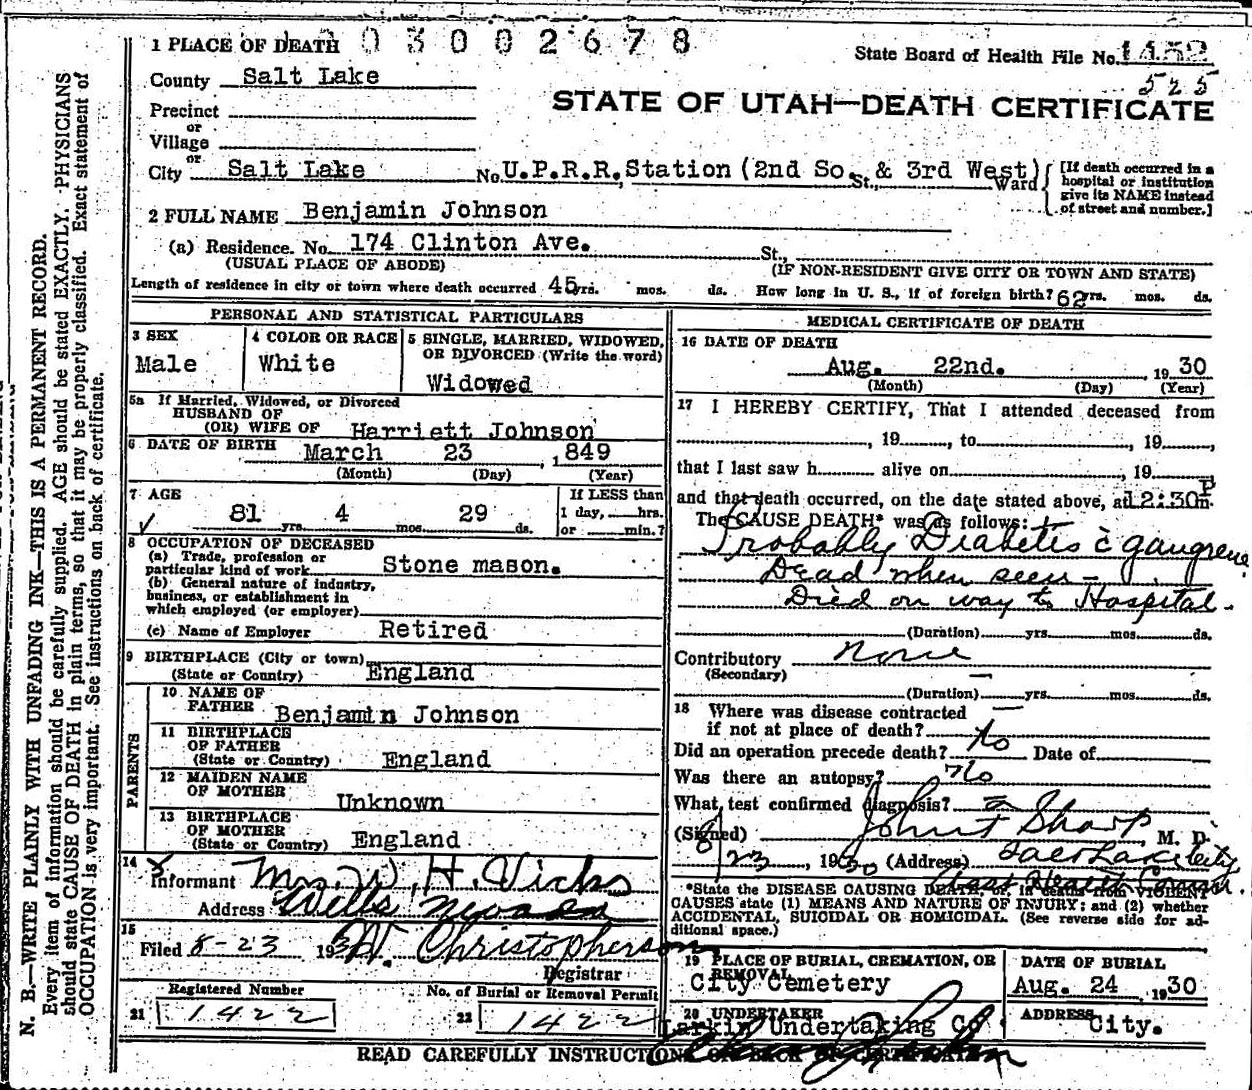 1 PLACE OF DEATH 1003002678
State Board of Health File No. 1452
525
County Salt Lake
STATE OF UTAH—DEATH CERTIFICATE
Precinct
or
Village
or
City Salt Lake No. U.P.R.R. Station (2nd So. & 3rd West) St., Ward
[If death occurred in a hospital or institution give its NAME instead of street and number.]
2 FULL NAME Benjamin Johnson
(a) Residence. No. 174 Clinton Ave. St.,
(USUAL PLACE OF ABODE) (IF NON-RESIDENT GIVE CITY OR TOWN AND STATE)
Length of residence in city or town where death occurred 45 yrs. mos. ds. How long in U. S., if of foreign birth? 62 yrs. mos. ds.
PERSONAL AND STATISTICAL PARTICULARS
3 SEX
Male
4 COLOR OR RACE
White
5 SINGLE, MARRIED, WIDOWED, OR DIVORCED (Write the word)
Widowed
5a If Married, Widowed, or Divorced
HUSBAND OF
(OR) WIFE OF Harriett Johnson
6 DATE OF BIRTH March 23, 1849
(Month) (Day) (Year)
7 AGE
81 yrs. 4 mos. 29 ds.
If LESS than
1 day, hrs.
or min.?
8 OCCUPATION OF DECEASED
(a) Trade, profession or
particular kind of work Stone mason.
(b) General nature of industry,
business, or establishment in
which employed (or employer)
(c) Name of Employer Retired
9 BIRTHPLACE (City or town)
(State or Country) England
PARENTS
10 NAME OF
FATHER Benjamin Johnson
11 BIRTHPLACE
OF FATHER
(State or Country) England
12 MAIDEN NAME
OF MOTHER Unknown
13 BIRTHPLACE
OF MOTHER
(State or Country) England
14
Informant Mrs. W. H. Vicks
Address Wells Nevada
15
Filed 8-23 1930 W. Christopherson
Registrar
Registered Number
21 1422
No. of Burial or Removal Permit
22 1422
MEDICAL CERTIFICATE OF DEATH
16 DATE OF DEATH
Aug. 22nd. , 1930
(Month) (Day) (Year)
17 I HEREBY CERTIFY, That I attended deceased from
, 19 , to , 19 ,
that I last saw h alive on , 19
and that death occurred, on the date stated above, at 12:30 P m.
The CAUSE DEATH* was as follows:
Probably Diabetis c̄ gangrene
Dead when seen -
Died on way to Hospital.
(Duration) yrs. mos. ds.
Contributory none
(Secondary)
(Duration) yrs. mos. ds.
18 Where was disease contracted
if not at place of death? —
Did an operation precede death? No Date of
Was there an autopsy? No
What test confirmed diagnosis? —
(Signed) John T Sharp, M. D.
8/23, 1930 (Address) Salt Lake City
*State the DISEASE CAUSING DEATH, or, in deaths from VIOLENT
CAUSES state (1) MEANS AND NATURE OF INJURY; and (2) whether
ACCIDENTAL, SUICIDAL OR HOMICIDAL. (See reverse side for additional space.)
19 PLACE OF BURIAL, CREMATION, OR REMOVAL
City Cemetery
DATE OF BURIAL
Aug. 24, 1930
20 UNDERTAKER
Larkin Undertaking Co
ADDRESS
City.
READ CAREFULLY INSTRUCTIONS ON BACK OF CERTIFICATE
N. B.—WRITE PLAINLY WITH UNFADING INK—THIS IS A PERMANENT RECORD.
Every item of information should be carefully supplied. AGE should be stated EXACTLY. PHYSICIANS
should state CAUSE OF DEATH in plain terms, so that it may be properly classified. Exact statement of
OCCUPATION is very important. See instructions on back of certificate.